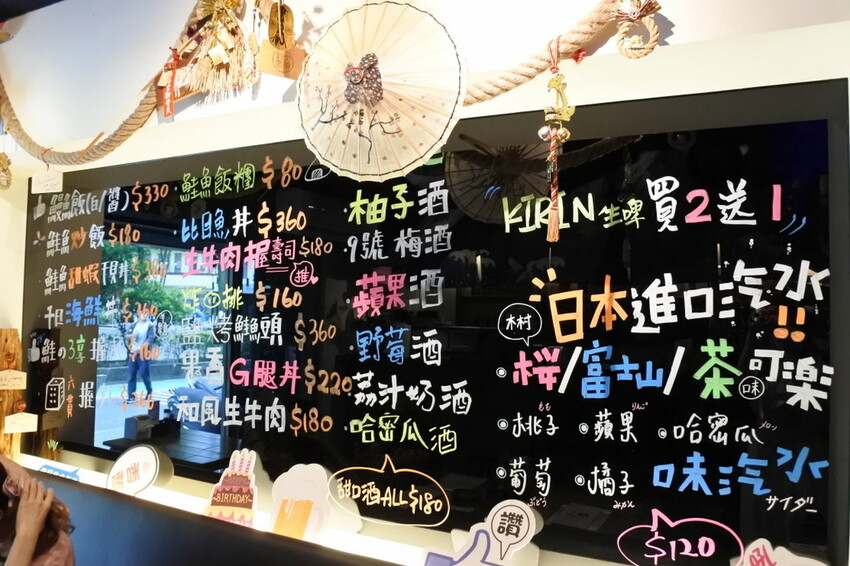 鰻飯(白/酒) $330
鮭魚炒飯 $180
鮭魚甜蝦干貝丼
海鮮 $360
鮭の3享握 $160
六貫握 $360
鮭魚飯糰 $80
比目魚丼 $360
生牛肉握壽司 $180
推
$160
鹽烤鮭魚頭 $360
果香G腿丼 $220
和風生牛肉 $180
柚子酒
9號梅酒
蘋果酒
野莓酒
荔汁奶酒
哈密瓜酒
甜口酒ALL$180
KIRIN生啤買2送1
日本進口汽水!!
木村
桜/富士山/茶可樂
味
桃子 もも
蘋果 りんご
哈密瓜 メロン
葡萄 ぶどう
橘子 みかん
味汽水
サイダー
$120
BIRTHDAY
讚